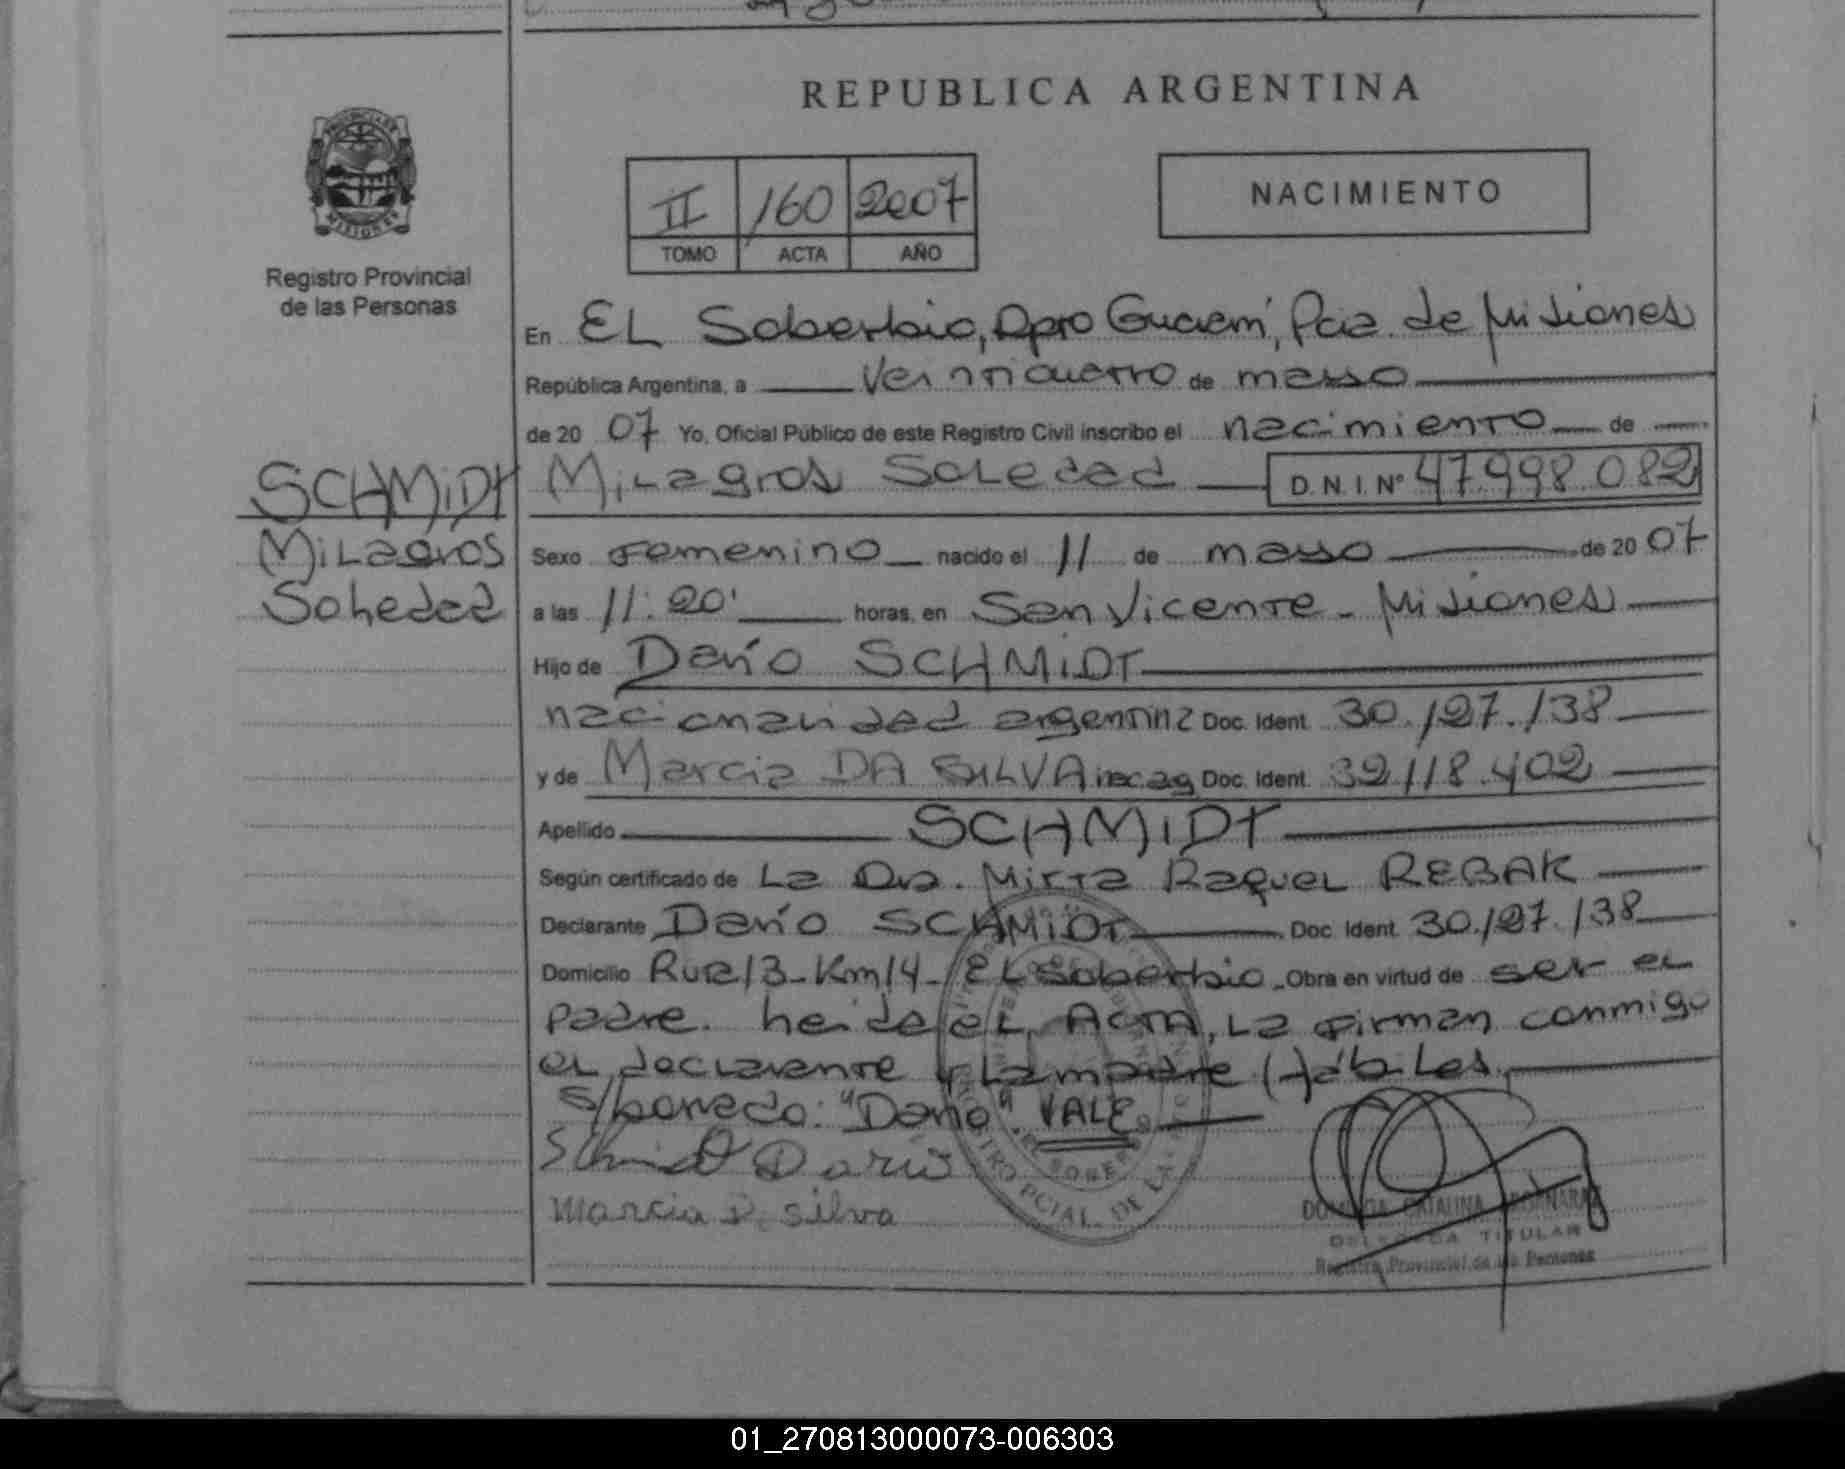 REPUBLICA ARGENTINA
PROVINCIA DE
MISIONES
Registro Provincial
de las Personas
II 160 2007
TOMO ACTA AÑO
NACIMIENTO
En EL Soberbio, Dpto Guaraní, Pcia. de Misiones
República Argentina, a Veinticuatro de mayo
de 20 07 Yo, Oficial Público de este Registro Civil inscribo el nacimiento de
SCHMIDT
Milagros
Soledad
Milagros Soledad D.N.I. Nº 47.998.082
Sexo Femenino nacido el 11 de mayo de 20 07
a las 11:20' horas, en San Vicente - Misiones
Hijo de Darío SCHMIDT
nacionalidad argentina Doc. Ident. 30.127.138
y de Marcia DA SILVA nac. arg Doc. Ident. 32.118.402
Apellido SCHMIDT
Según certificado de La Dra. Mirta Raquel REBAK
Declarante Darío SCHMIDT Doc. Ident. 30.127.138
Domicilio Ruta 13 - Km 14 - EL Soberbio Obra en virtud de ser el
padre. Leída el ACTA, La firman conmigo
el declarante y La madre Hábiles.
s/borrado: "Darío". VALE
Schmidt Dario
Marcia D. Silva
CATALINA
DELEGADA TITULAR
Registro Provincial de las Personas
01_270813000073-006303